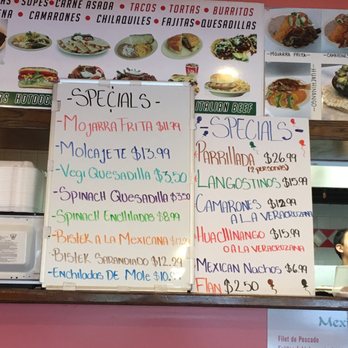 SOPES CARNE ASADA TACOS TORTAS BURRITOS
CAMARONES CHILAQUILES FAJITAS QUESADILLAS
ITALIAN BEEF
MOJARRA FRITA
CAMARONES
HUACHINANGO
- SPECIALS -
- MOJARRA FRITA $11.99
- MOLCAJETE $13.99
- VEGI QUESADILLA $3.50
- SPINACH QUESADILLA $3.50
- SPINACH ENCHILADAS $8.99
- BISTEK A LA MEXICANA
- BISTEK SARANDIADO $12.99
- ENCHILADAS DE MOLE
SPECIALS -
PARRILLADA $26.99
(2 personas)
LANGOSTINOS $15.99
CAMARONES $12.99
A LA VERACRUZANA
HUACHINANGO $15.99
O A LA VERACRUZANA
MEXICAN NACHOS $6.99
FLAN $2.50
Mex
Filet de Pescado